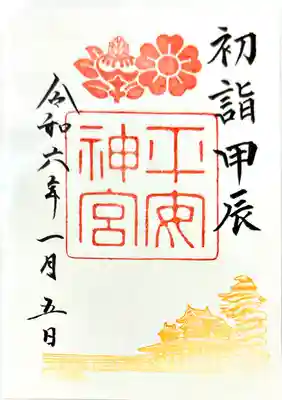 初詣 甲辰
平安
神宮
令和六年 一月 五日